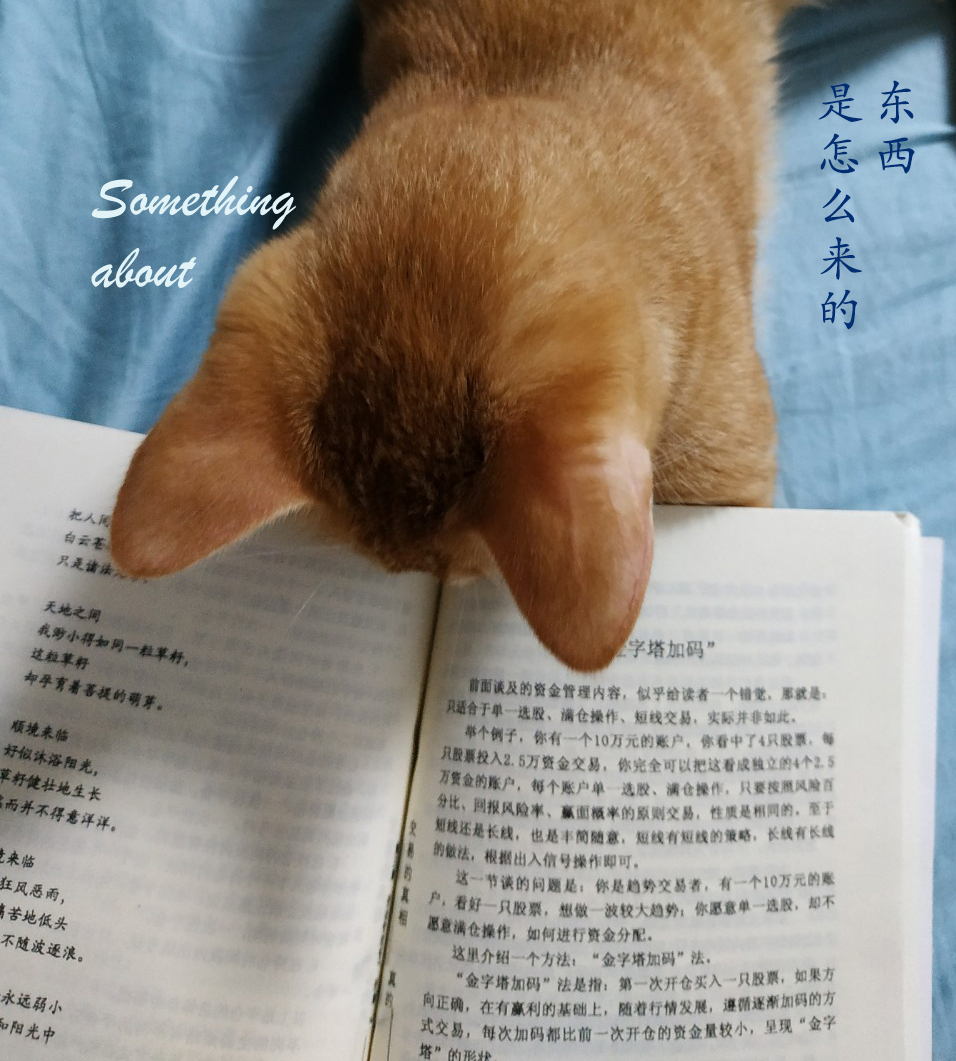 Something
about
东西
是怎么来的
把人间
白云苍
只是诸法
天地之间
我渺小得如同一粒草籽，
这粒草籽
却孕育着菩提的萌芽。
顺境来临
好似沐浴阳光，
草籽健壮地生长
而并不得意洋洋。
境来临
狂风恶雨，
痛苦地低头
不随波逐浪。
永远弱小
和阳光中
交易的真相
真的
金字塔加码”
前面谈及的资金管理内容，似乎给读者一个错觉，那就是：
只适合于单一选股、满仓操作、短线交易，实际并非如此。
举个例子，你有一个10万元的账户，你看中了4只股票，每
只股票投入2.5万资金交易，你完全可以把这看成独立的4个2.5
万资金的账户，每个账户单一选股、满仓操作，只要按照风险百
分比、回报风险率、赢面概率的原则交易，性质是相同的。至于
短线还是长线，也是丰简随意，短线有短线的策略，长线有长线
的做法，根据出入信号操作即可。
这一节谈的问题是：你是趋势交易者，有一个10万元的账
户，看好一只股票，想做一波较大趋势；你愿意单一选股，却不
愿意满仓操作，如何进行资金分配。
这里介绍一个方法：“金字塔加码”法。
“金字塔加码”法是指：第一次开仓买入一只股票，如果方
向正确，在有赢利的基础上，随着行情发展，遵循逐渐加码的方
式交易，每次加码都比前一次开仓的资金量较小，呈现“金字
塔”的形状